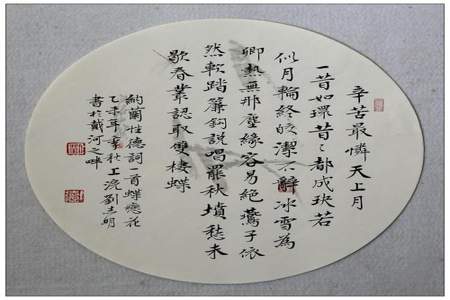 辛苦最憐天上月
一昔如環昔々都成玦若
似月輪終皎潔不辭冰雪為
卿熱無那塵緣容易絕鷰子依
然軟踏簾鉤説唱罷秋墳愁未
歇春叢認取雙棲蝶
納蘭性德詞一首蝶戀花
乙未年秋上浣劉志明
書於戴河之畔